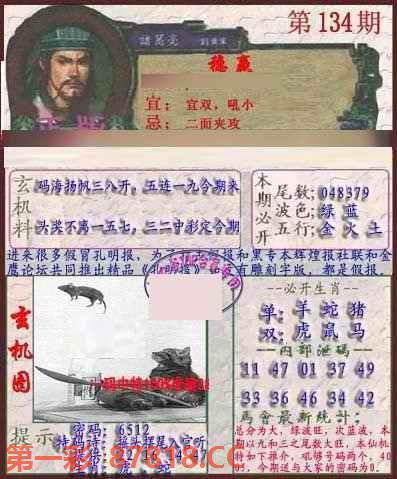 第134期
諸葛亮
穩贏
宜: 宜双,吼小
忌: 二面夹攻
玄机料
码海扬帆三八开, 五连一九今期来
头奖不离一五七, 三二二寸彩定今期
本期必开
尾数: 048379
波色: 绿 蓝
五行: 金 火 土
进来很多假冒孔明报,为了
报和黑专本辉煌报社联和金
鹰论坛共同推出精品
有雕刻字版,都是假报。
玄机图
--必开生肖--
单: 羊 蛇 猪
双: 虎 鼠 马
--内部泄码--
11 47 01 37 49
33 36 46 34 42
--马會最新统计:
总分为大,绿波旺,次蓝波,本
期以九和三之尾数大旺,本仙机
特如下推介,吼够号码两个,4
05,今期送与大家的密码为0.
提示
密码: 6512
特码诗: 接头摆尾入宫听
第一彩 87818.CC